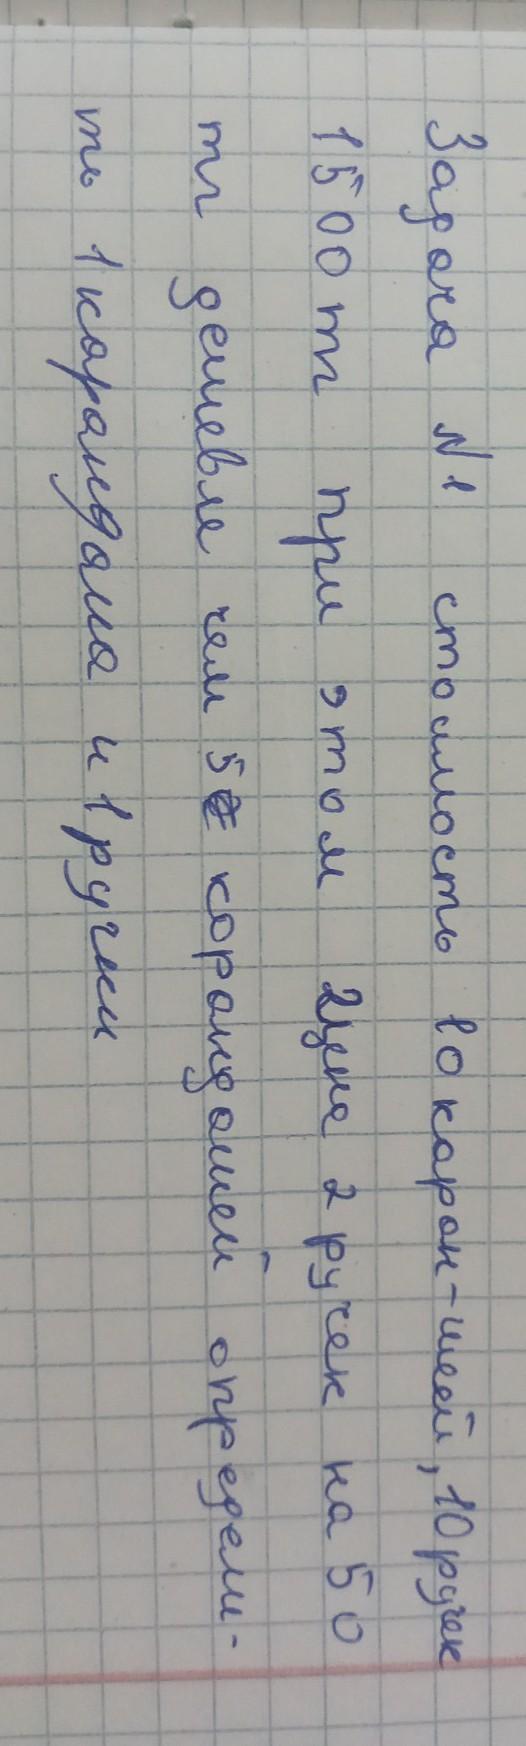 Задача №1 стоимость 10 каран-шей, 10 ручек
1500 тг при этом цена 2 ручек на 50
тг дешевле чем 5 карандашей определи-
ть 1 карандаша и 1 ручки